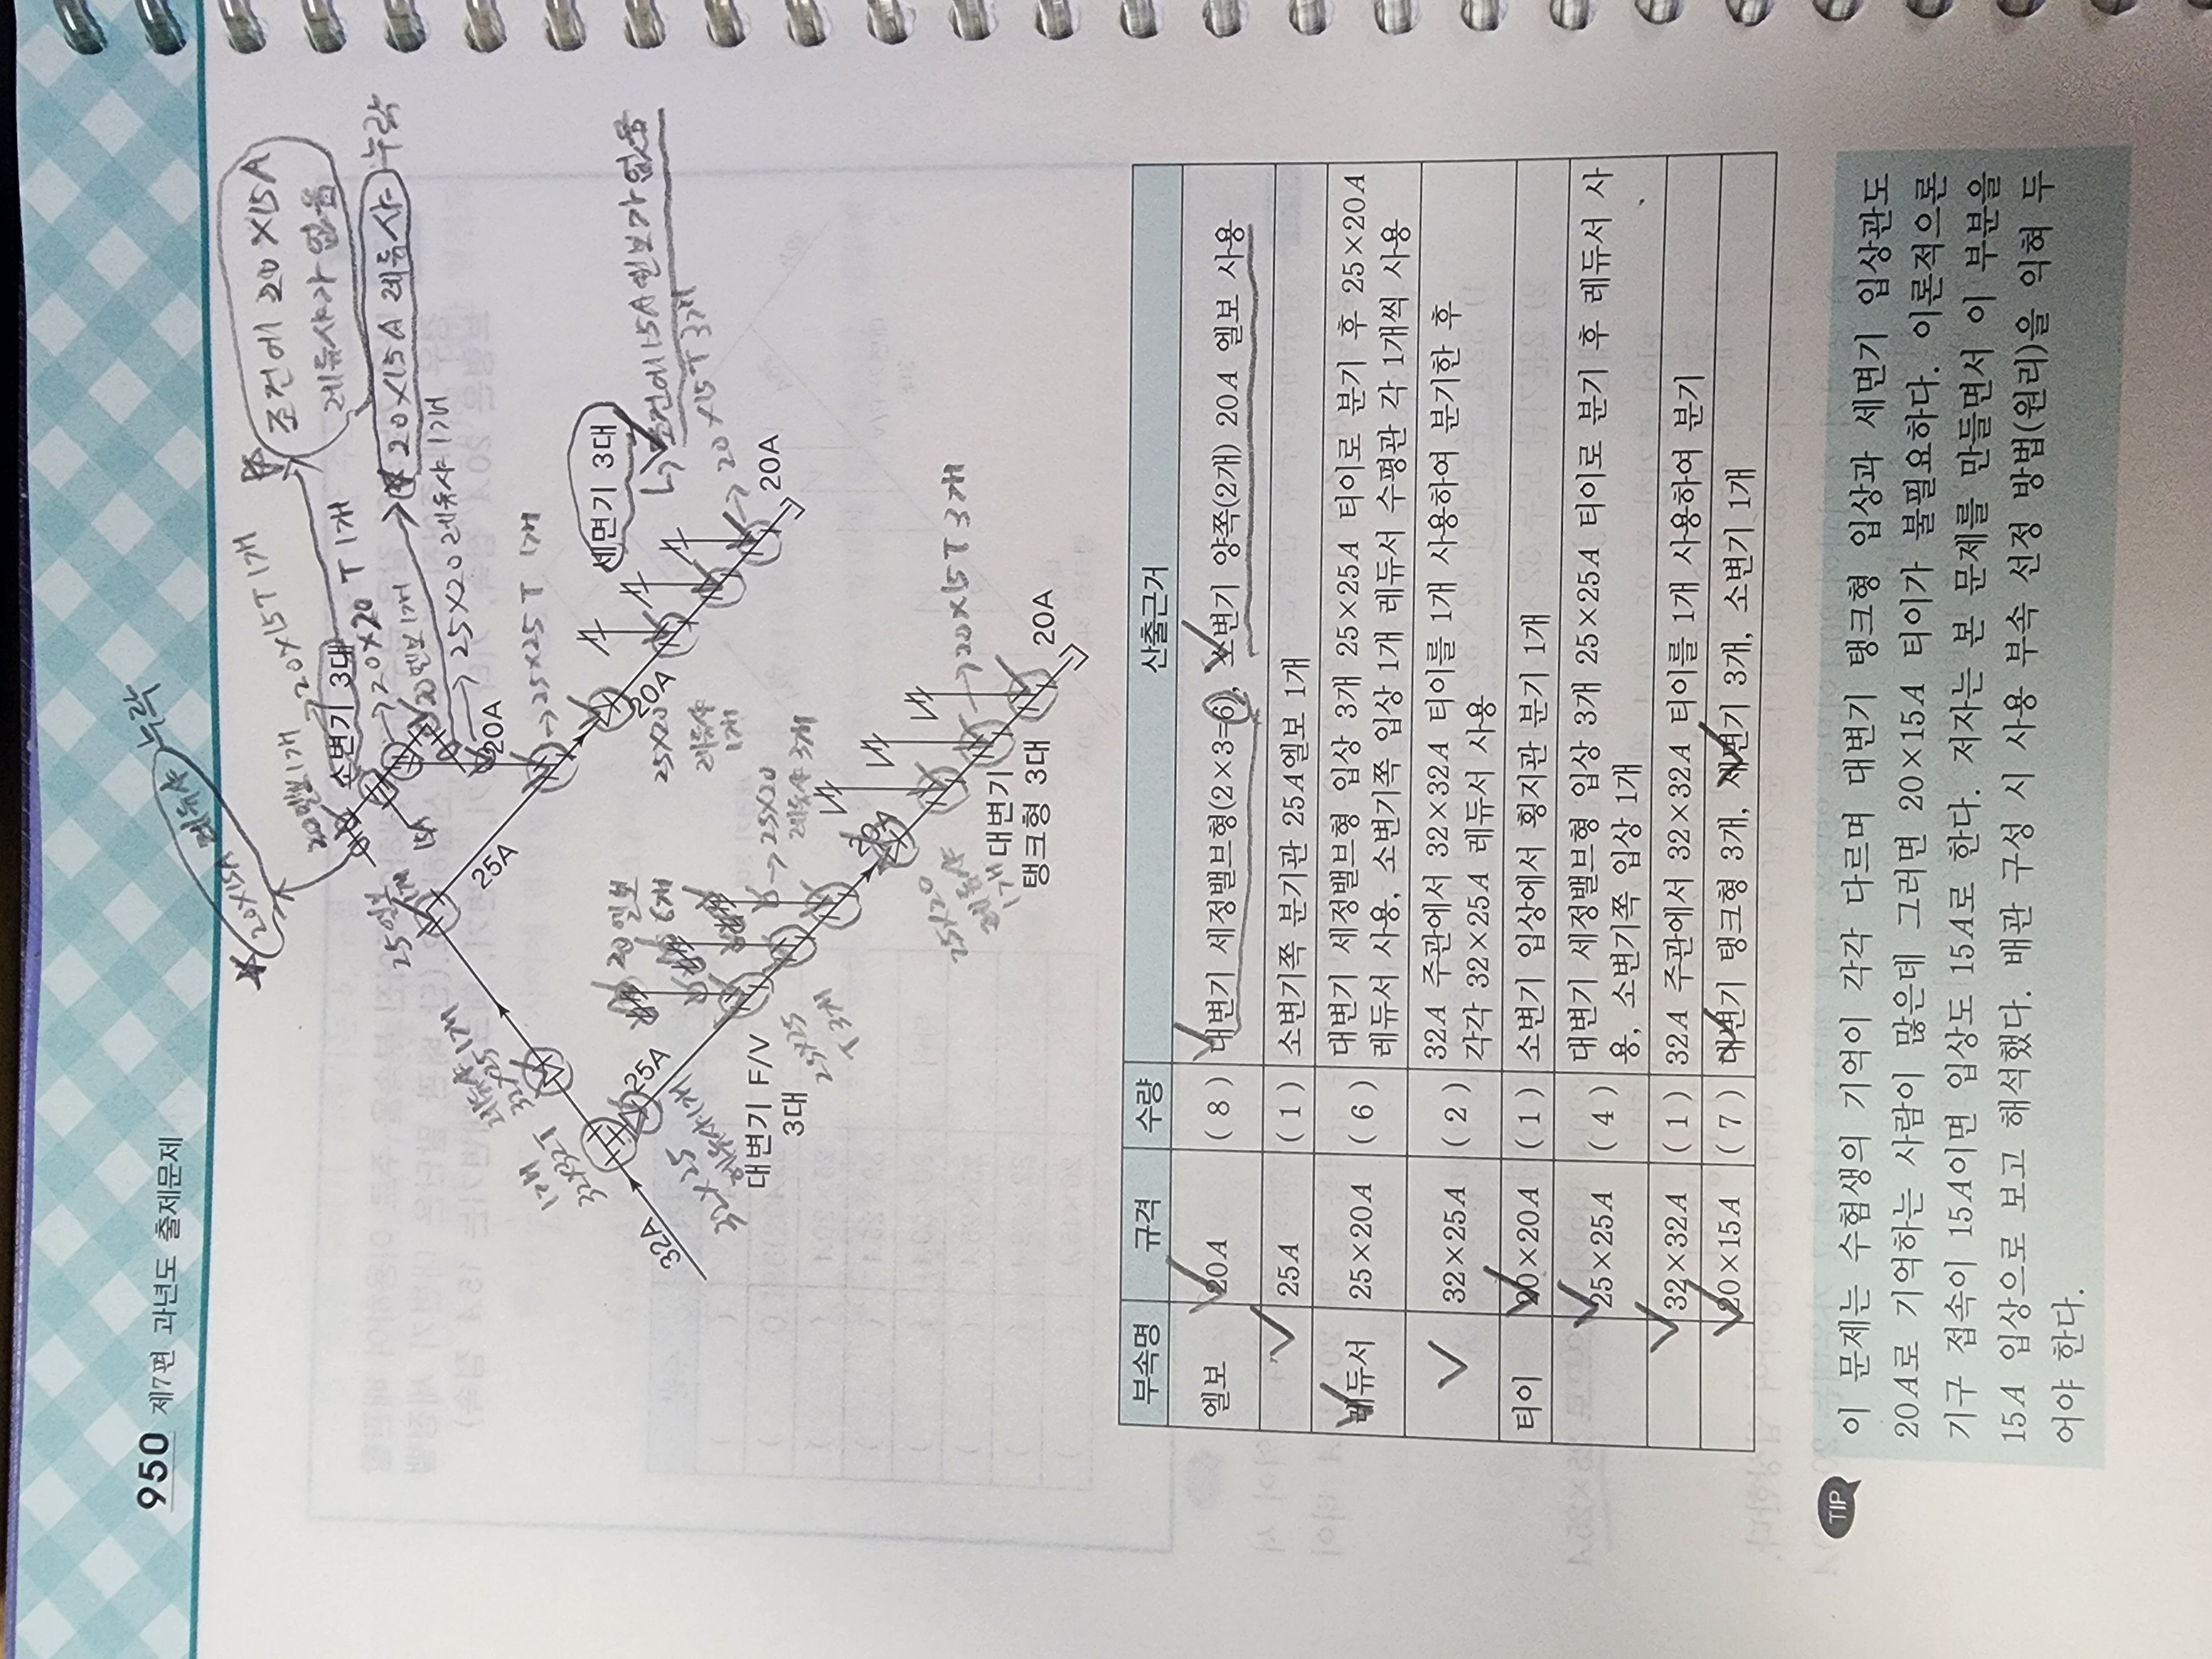 950 제7편 과년도 출제문제
20×15A 레듀샤 누락
조건에 20×15A
레듀샤가 없음
20엘보 1개
20×15T 1개
소변기 3대
20×20 T 1개
20엘보 1개
20×15A 레듀샤 누락
25×20 레듀샤 1개
20A
25×25 T 1개
25엘보
25A
세면기 3대
조건에 15A 엘보가 없음
20×15T 3개
20A
20A
25×20
레듀샤
1개
레듀샤 1개
32×25
1개
32×32T
32A
25A
32×25
20엘보
6개
25×20
레듀샤 3개
대변기 F/V
3대
25×25
3개
25×20
레듀샤
1개
대변기
탱크형 3대
20×15T 3개
20A
부속명 규격 수량 산출근거
엘보 20A ( 8 ) 대변기 세정밸브형(2×3=6), 소변기 양쪽(2개) 20A 엘보 사용
25A ( 1 ) 소변기쪽 분기관 25A엘보 1개
레듀서 25×20A ( 6 ) 대변기 세정밸브형 입상 3개 25×25A 티이로 분기 후 25×20A
레듀서 사용, 소변기쪽 입상 1개 레듀서 수평관 각 1개씩 사용
32×25A ( 2 ) 32A 주관에서 32×32A 티이를 1개 사용하여 분기한 후
각각 32×25A 레듀서 사용
티이 20×20A ( 1 ) 소변기 입상에서 횡지관 분기 1개
25×25A ( 4 ) 대변기 세정밸브형 입상 3개 25×25A 티이로 분기 후 레듀서 사
용, 소변기쪽 입상 1개
32×32A ( 1 ) 32A 주관에서 32×32A 티이를 1개 사용하여 분기
20×15A ( 7 ) 대변기 탱크형 3개, 세면기 3개, 소변기 1개
TIP
이 문제는 수험생의 기억이 각각 다르며 대변기 탱크형 입상과 세면기 입상관도
20A로 기억하는 사람이 많은데 그러면 20×15A 티이가 불필요하다. 이론적으론
기구 접속이 15A이면 입상도 15A로 한다. 저자는 본 문제를 만들면서 이 부분을
15A 입상으로 보고 해석했다. 배관 구성 시 사용 부속 선정 방법(원리)을 익혀 두
어야 한다.